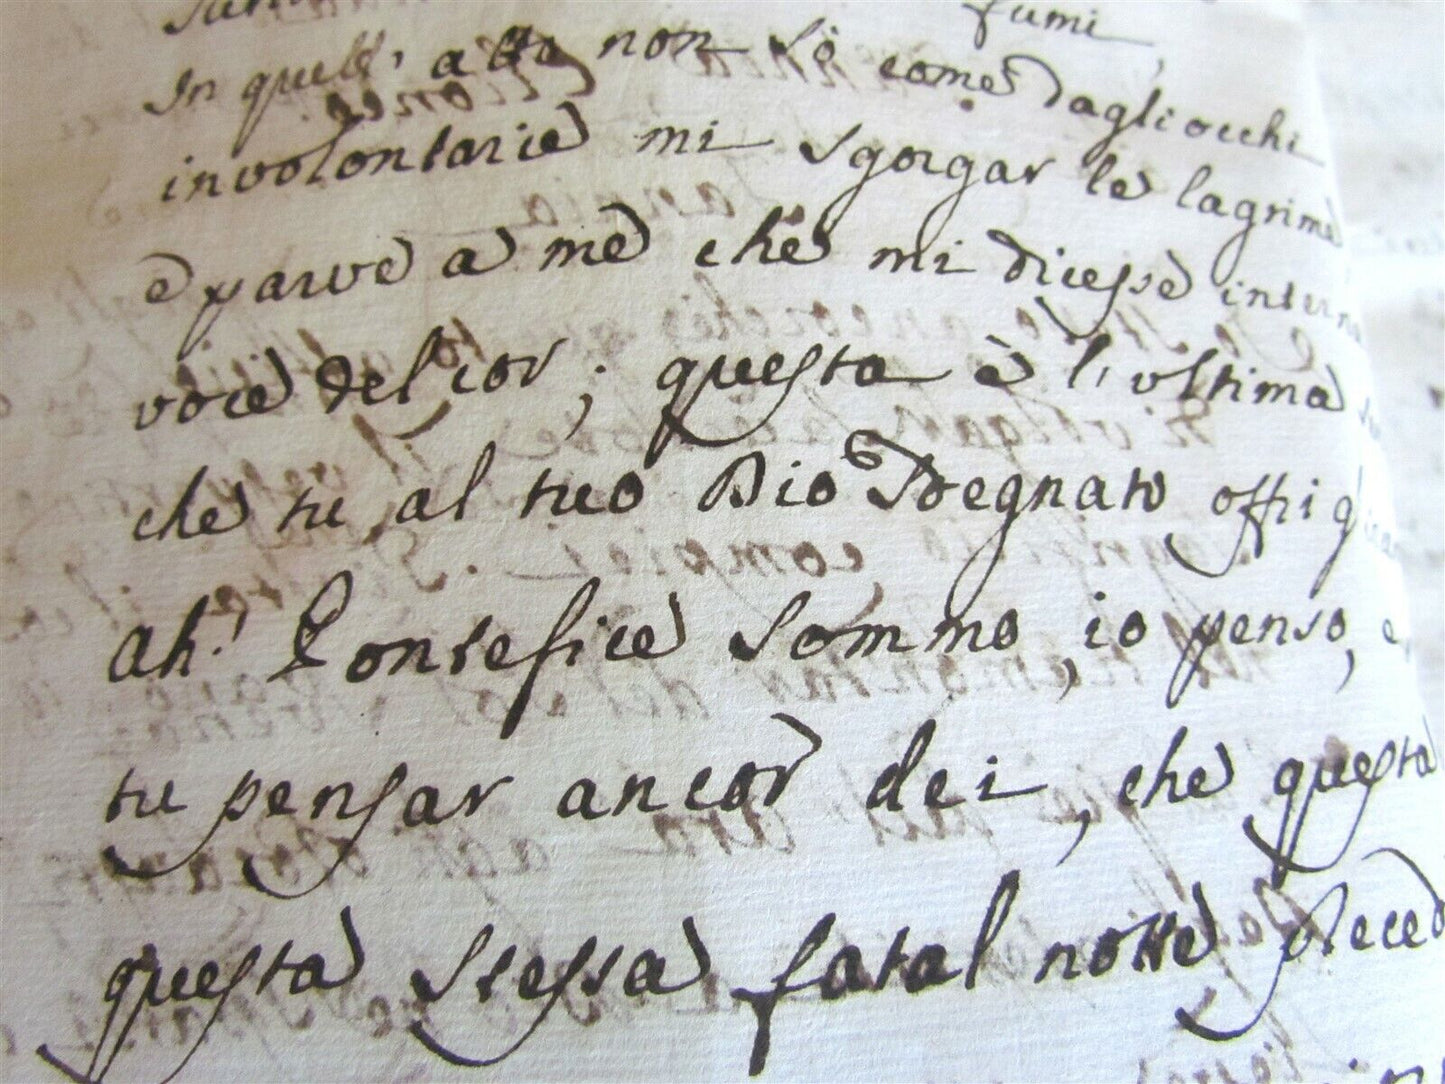 fumi,
In quell'atto non sò come dagli occhi
involontarie mi sgorgar le lagrime
e parve a me che mi dicesse interna
voce del cor; questa è l'ultima
che tu al tuo Dio sdegnato offri
ah! Pontefice sommo, io penso, e
tu pensar ancor dei, che questa
questa stessa fatal notte